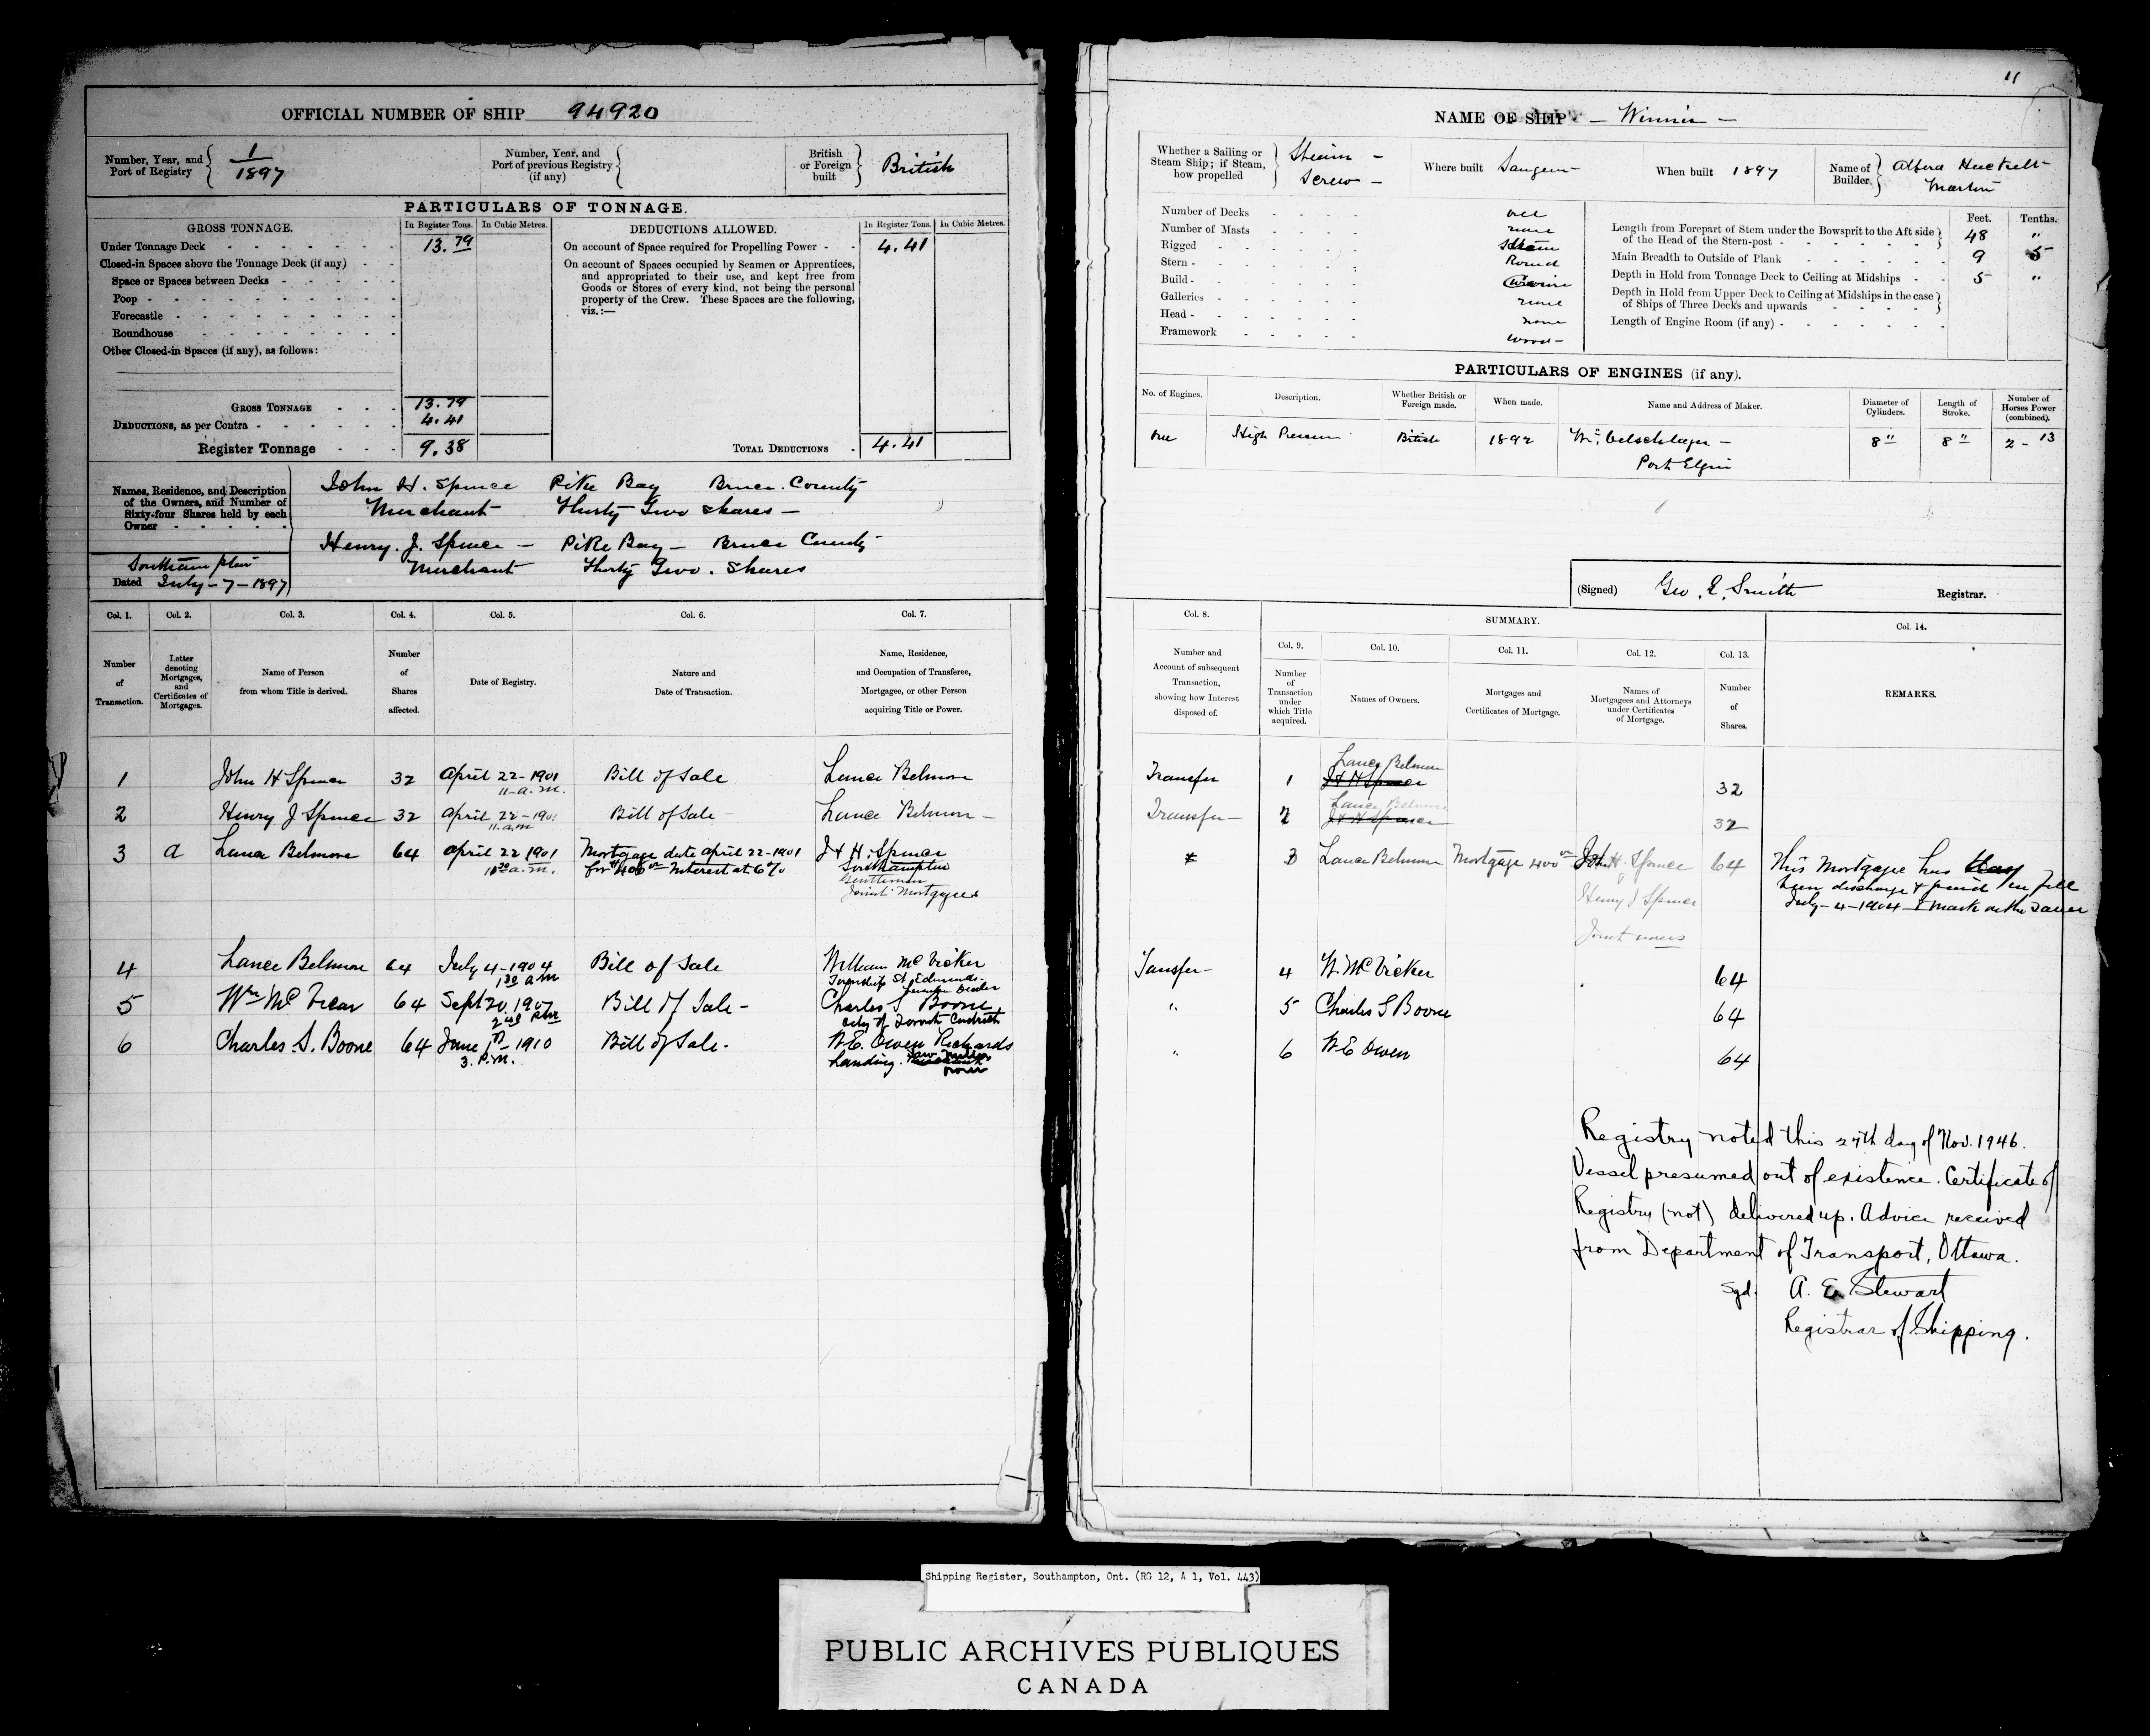 OFFICIAL NUMBER OF SHIP 94920
Number, Year, and Port of Registry 1/1897
Number, Year, and Port of previous Registry (if any)
British or Foreign built British
PARTICULARS OF TONNAGE.
GROSS TONNAGE. In Register Tons. In Cubic Metres.
DEDUCTIONS ALLOWED. In Register Tons. In Cubic Metres.
Under Tonnage Deck 13.79
On account of Space required for Propelling Power 4.41
Closed-in Spaces above the Tonnage Deck (if any)
Space or Spaces between Decks
Poop
Forecastle
Roundhouse
Other Closed-in Spaces (if any), as follows:
On account of Spaces occupied by Seamen or Apprentices,
and appropriated to their use, and kept free from
Goods or Stores of every kind, not being the personal
property of the Crew. These Spaces are the following,
viz.:—
GROSS TONNAGE 13.79
DEDUCTIONS, as per Contra 4.41
Register Tonnage 9.38
TOTAL DEDUCTIONS 4.41
Names, Residence, and Description
of the Owners, and Number of
Sixty-four Shares held by each
Owner
John H. Spence Pike Bay Bruce County
Merchant Thirty Two Shares —
Henry. J. Spence — Pike Bay — Bruce County
Merchant Thirty Two. Shares
Southampton
Dated July-7-1897
Col. 1. Col. 2. Col. 3. Col. 4. Col. 5. Col. 6. Col. 7.
Number of Transaction.
Letter denoting Mortgages, and Certificates of Mortgages.
Name of Person from whom Title is derived.
Number of Shares affected.
Date of Registry.
Nature and Date of Transaction.
Name, Residence, and Occupation of Transferee, Mortgagee, or other Person acquiring Title or Power.
1 John H Spence 32 April 22-1901 Bill of Sale Lance Belmore
11-a.m.
2 Henry J Spence 32 April 22-1901 Bill of Sale Lance Belmore —
11.a.m
3 a Lance Belmore 64 April 22 1901 Mortgage date April 22-1901 J & H. Spence
a.m. for $400 Interest at 6% Southampton
Gentlemen
Joint Mortgagees
4 Lance Belmore 64 July 4-1904 Bill of Sale William McVicker
1 30 a.m Township St Edmunds
5 Wm McVicar 64 Sept 20. 1907 Bill of Sale - Charles S Boone
City of Toronto
6 Charles. S. Boone 64 June 1st 1910 Bill of Sale. W.E. Owen Richards
3. P.M. Landing.
11
NAME OF SHIP — Winnie —
Whether a Sailing or Steam Ship; if Steam, how propelled Steam - Screw -
Where built Saugeen
When built 1897
Name of Builder Martin
Number of Decks one
Number of Masts none
Rigged
Stern Round
Build
Galleries none
Head none
Framework wood-
Feet. Tenths.
Length from Forepart of Stem under the Bowsprit to the Aft side of the Head of the Stern-post 48 "
Main Breadth to Outside of Plank 9 5
Depth in Hold from Tonnage Deck to Ceiling at Midships 5 "
Depth in Hold from Upper Deck to Ceiling at Midships in the case of Ships of Three Decks and upwards
Length of Engine Room (if any)
PARTICULARS OF ENGINES (if any).
No. of Engines. Description. Whether British or Foreign made. When made. Name and Address of Maker. Diameter of Cylinders. Length of Stroke. Number of Horses Power (combined).
one High Pressure British 1892 8" 8" 2-13
Port Elgin
(Signed) Geo. E. Smith Registrar.
Col. 8. SUMMARY. Col. 14.
Col. 9. Col. 10. Col. 11. Col. 12. Col. 13.
Number and Account of subsequent Transaction, showing how Interest disposed of.
Number of Transaction under which Title acquired.
Names of Owners.
Mortgages and Certificates of Mortgage.
Names of Mortgagees and Attorneys under Certificates of Mortgage.
Number of Shares.
REMARKS.
Lance Belmore
Transfer 1 J & H Spence 32
Lance Belmore
Transfer — 2 J & H Spence 32
3 Lance Belmore Mortgage 400 John H. Spence 64 This Mortgage has
Henry J Spence been discharge & paid in full
July-4-1904
Joint
Tansfer- 4 W. McVicker 64
" 5 Charles S Boone 64
" 6 W E Owen 64
Registry noted this 27th day of Nov. 1946.
Vessel presumed out of existence. Certificate of
Registry (not) delivered up. Advice received
from Department of Transport, Ottawa.
Sgd. A. E. Stewart
Registrar of Shipping.
Shipping Register, Southampton, Ont. (RG 12, A 1, Vol. 443)
PUBLIC ARCHIVES PUBLIQUES
CANADA